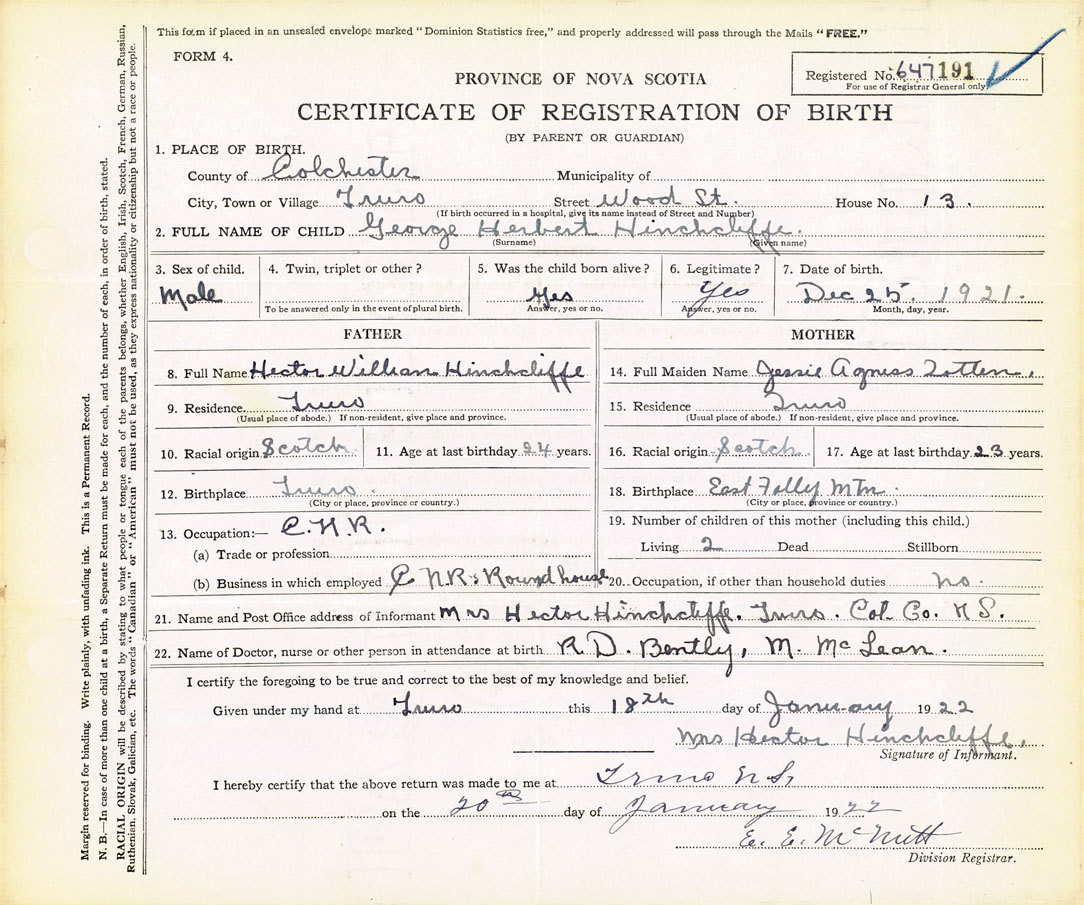 This form if placed in an unsealed envelope marked "Dominion Statistics free," and properly addressed will pass through the Mails "FREE."
FORM 4.
Registered No. 647191
For use of Registrar General only.
PROVINCE OF NOVA SCOTIA
CERTIFICATE OF REGISTRATION OF BIRTH
(BY PARENT OR GUARDIAN)
1. PLACE OF BIRTH.
County of Colchester Municipality of
City, Town or Village Truro Street Wood St. House No. 13.
(If birth occurred in a hospital, give its name instead of Street and Number)
2. FULL NAME OF CHILD George Herbert Hinchcliffe.
(Surname) (Given name)
3. Sex of child. 4. Twin, triplet or other? 5. Was the child born alive? 6. Legitimate? 7. Date of birth.
Male Yes Yes Dec 25. 1921.
To be answered only in the event of plural birth. Answer, yes or no. Answer, yes or no. Month, day, year.
FATHER MOTHER
8. Full Name Hector William Hinchcliffe 14. Full Maiden Name Jessie Agness Totten.
9. Residence Truro 15. Residence Truro
(Usual place of abode.) If non-resident, give place and province. (Usual place of abode.) If non-resident, give place and province.
10. Racial origin Scotch 11. Age at last birthday 24 years. 16. Racial origin Scotch 17. Age at last birthday 23 years.
12. Birthplace Truro. 18. Birthplace East Folly Mtn.
(City or place, province or country.) (City or place, province or country.)
13. Occupation:— C.N.R. 19. Number of children of this mother (including this child.)
(a) Trade or profession Living 2 Dead Stillborn
(b) Business in which employed C N.R. Roundhouse 20. Occupation, if other than household duties no.
21. Name and Post Office address of Informant Mrs Hector Hinchcliffe. Truro. Col. Co. N S.
22. Name of Doctor, nurse or other person in attendance at birth R. D. Bently, M. McLean.
I certify the foregoing to be true and correct to the best of my knowledge and belief.
Given under my hand at Truro this 18th day of January 1922
Mrs Hector Hinchcliffe.
Signature of Informant.
I hereby certify that the above return was made to me at Truro N.S.
on the 20th day of January 1922
E. E. McNutt
Division Registrar.
Margin reserved for binding. Write plainly, with unfading ink. This is a Permanent Record.
N. B.—In case of more than one child at a birth, a Separate Return must be made for each, and the number of each, in order of birth, stated.
RACIAL ORIGIN will be described by stating to what people or tongue each of the parents belongs, whether English, Irish, Scotch, French, German, Russian,
Ruthenian, Slovak, Galician, etc. The words "Canadian" or "American" must not be used, as they express nationality or citizenship but not a race or people.